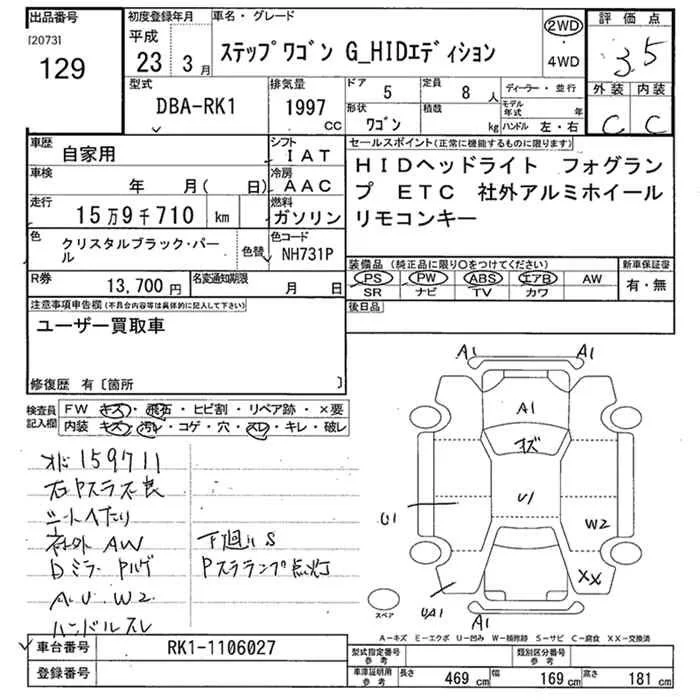 出品番号
[2073]
129
初度登録年月
平成
23 3月
車名・グレード
ステップワゴン G_HIDエディション
2WD
・
4WD
評価点
3.5
外装 内装
C C
型式
DBA-RK1
排気量
1997
CC
ドア
5
定員
8人
形状
ワゴン
積載
kg
ディーラー・並行
モデル年式 年
ハンドル 左・右
車歴
自家用
シフト
IAT
車検
年 月( 日)
冷房
AAC
走行
15万9千710 km
燃料
ガソリン
色
クリスタルブラック・パール
色替
色コード
NH731P
R券
13,700円
名変通知期限
月 日
セールスポイント(正常に機能するものに限ります)
HIDヘッドライト フォグラン
プ ETC 社外アルミホイール
リモコンキー
装備品(純正品に限り○をつけてください)
PS PW ABS エアB AW
SR ナビ TV カワ
新車保証書
有・無
後日品
注意事項申告欄(不具合内容等は具体的に記入して下さい)
ユーザー買取車
修復歴 有〔箇所 〕
検査員
記入欄
FW キズ・飛石・ヒビ割・リペア跡・×要
内装 キズ・汚レ・コゲ・穴・スレ・キレ・破レ
オド159711
石ヤスラズ良
シートへたり
社外AW
Dミラーヤルゲ
A.U.W2
ハンドルスレ
下廻りS
Pスラランプ点灯
A1 A1
A1
キズ
U1
U1
W2
XX
UA1
A1
スペア
A-キズ E-エクボ U-凹み W-補修跡 S-サビ C-腐食 XX-交換済
車台番号
RK1-1106027
登録番号
型式指定番号
参考
類別区分番号
参考
車庫証明用
参考
長さ 469 cm 幅 169 cm 高さ 181 cm